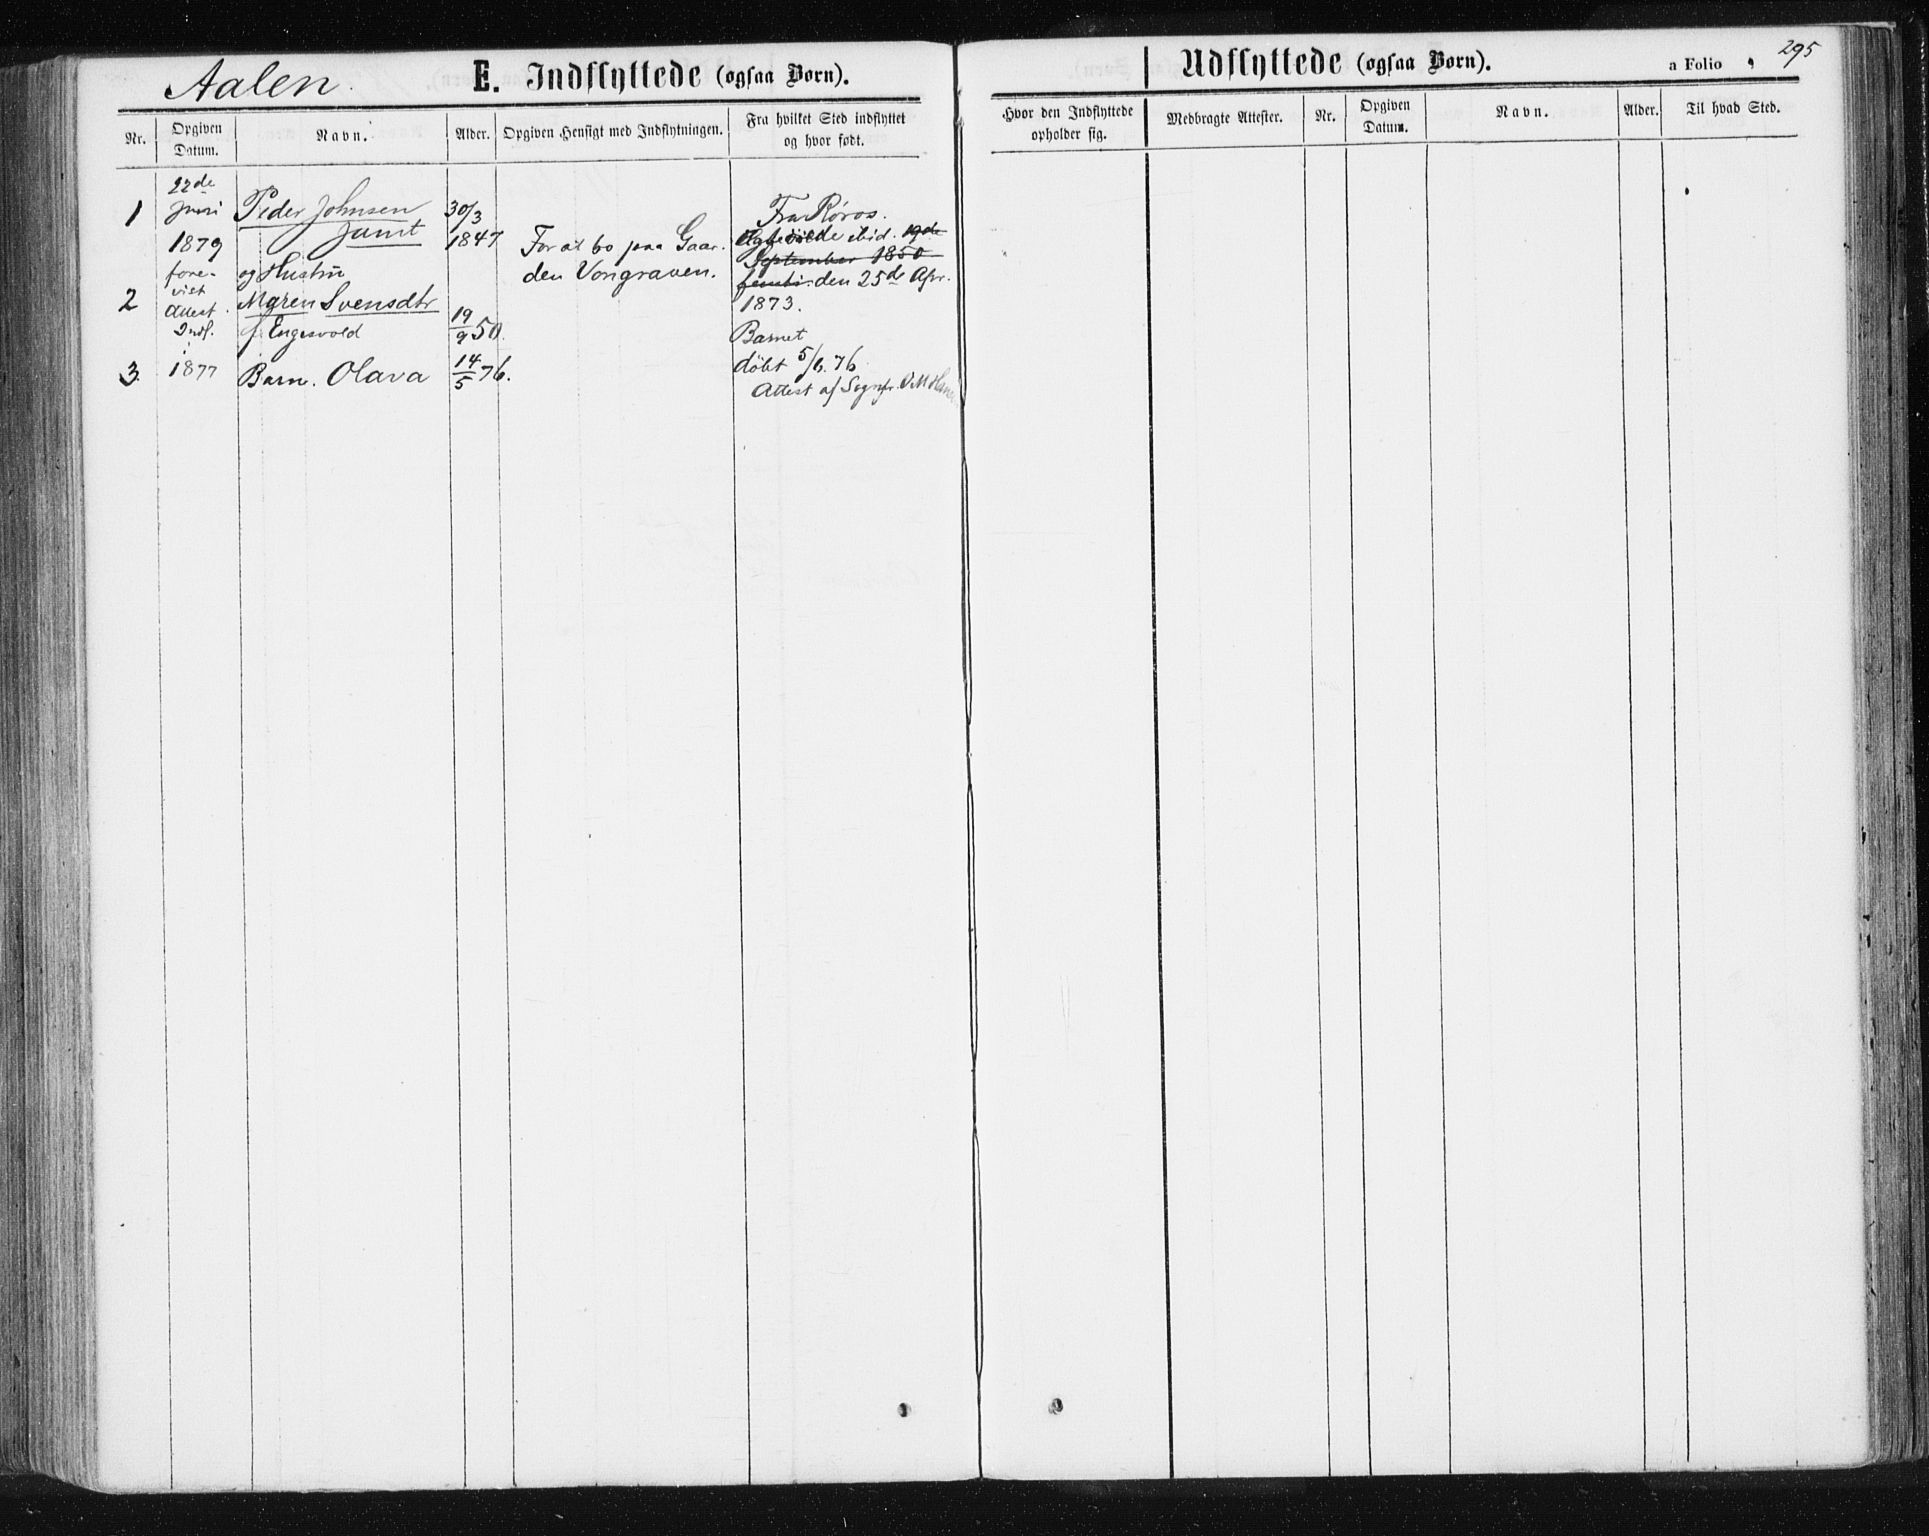 Aalen.
E. Indflyttede (ogsaa Børn).
Nr.
Opgiven Datum.
Navn.
Alder.
Opgiven Hensigt med Indflytningen.
Fra hvilket Sted indflyttet og hvor født.
1
22de
Juni
1879
fore-
vist
Attest.
Indf.
i
1877
Peder Johnsen
Jamt
30/3
1847
For at bo paa Gaar-
den Vongraven.
Fra Røros.
ibid. 19de
September 1850
den 25de Apr.
1873.
2
og Hustru
Maren Svensdtr
f. Engesvold
19/9 50.
3.
Barn. Olava
14/5 76.
Barnet
døbt 5/6. 76
Attest af Sognpr. O M Hansen
Udflyttede (ogsaa Børn).
a Folio
295
Hvor den Indflyttede opholder sig.
Medbragte Attester.
Nr.
Opgiven Datum.
Navn.
Alder.
Til hvad Sted.